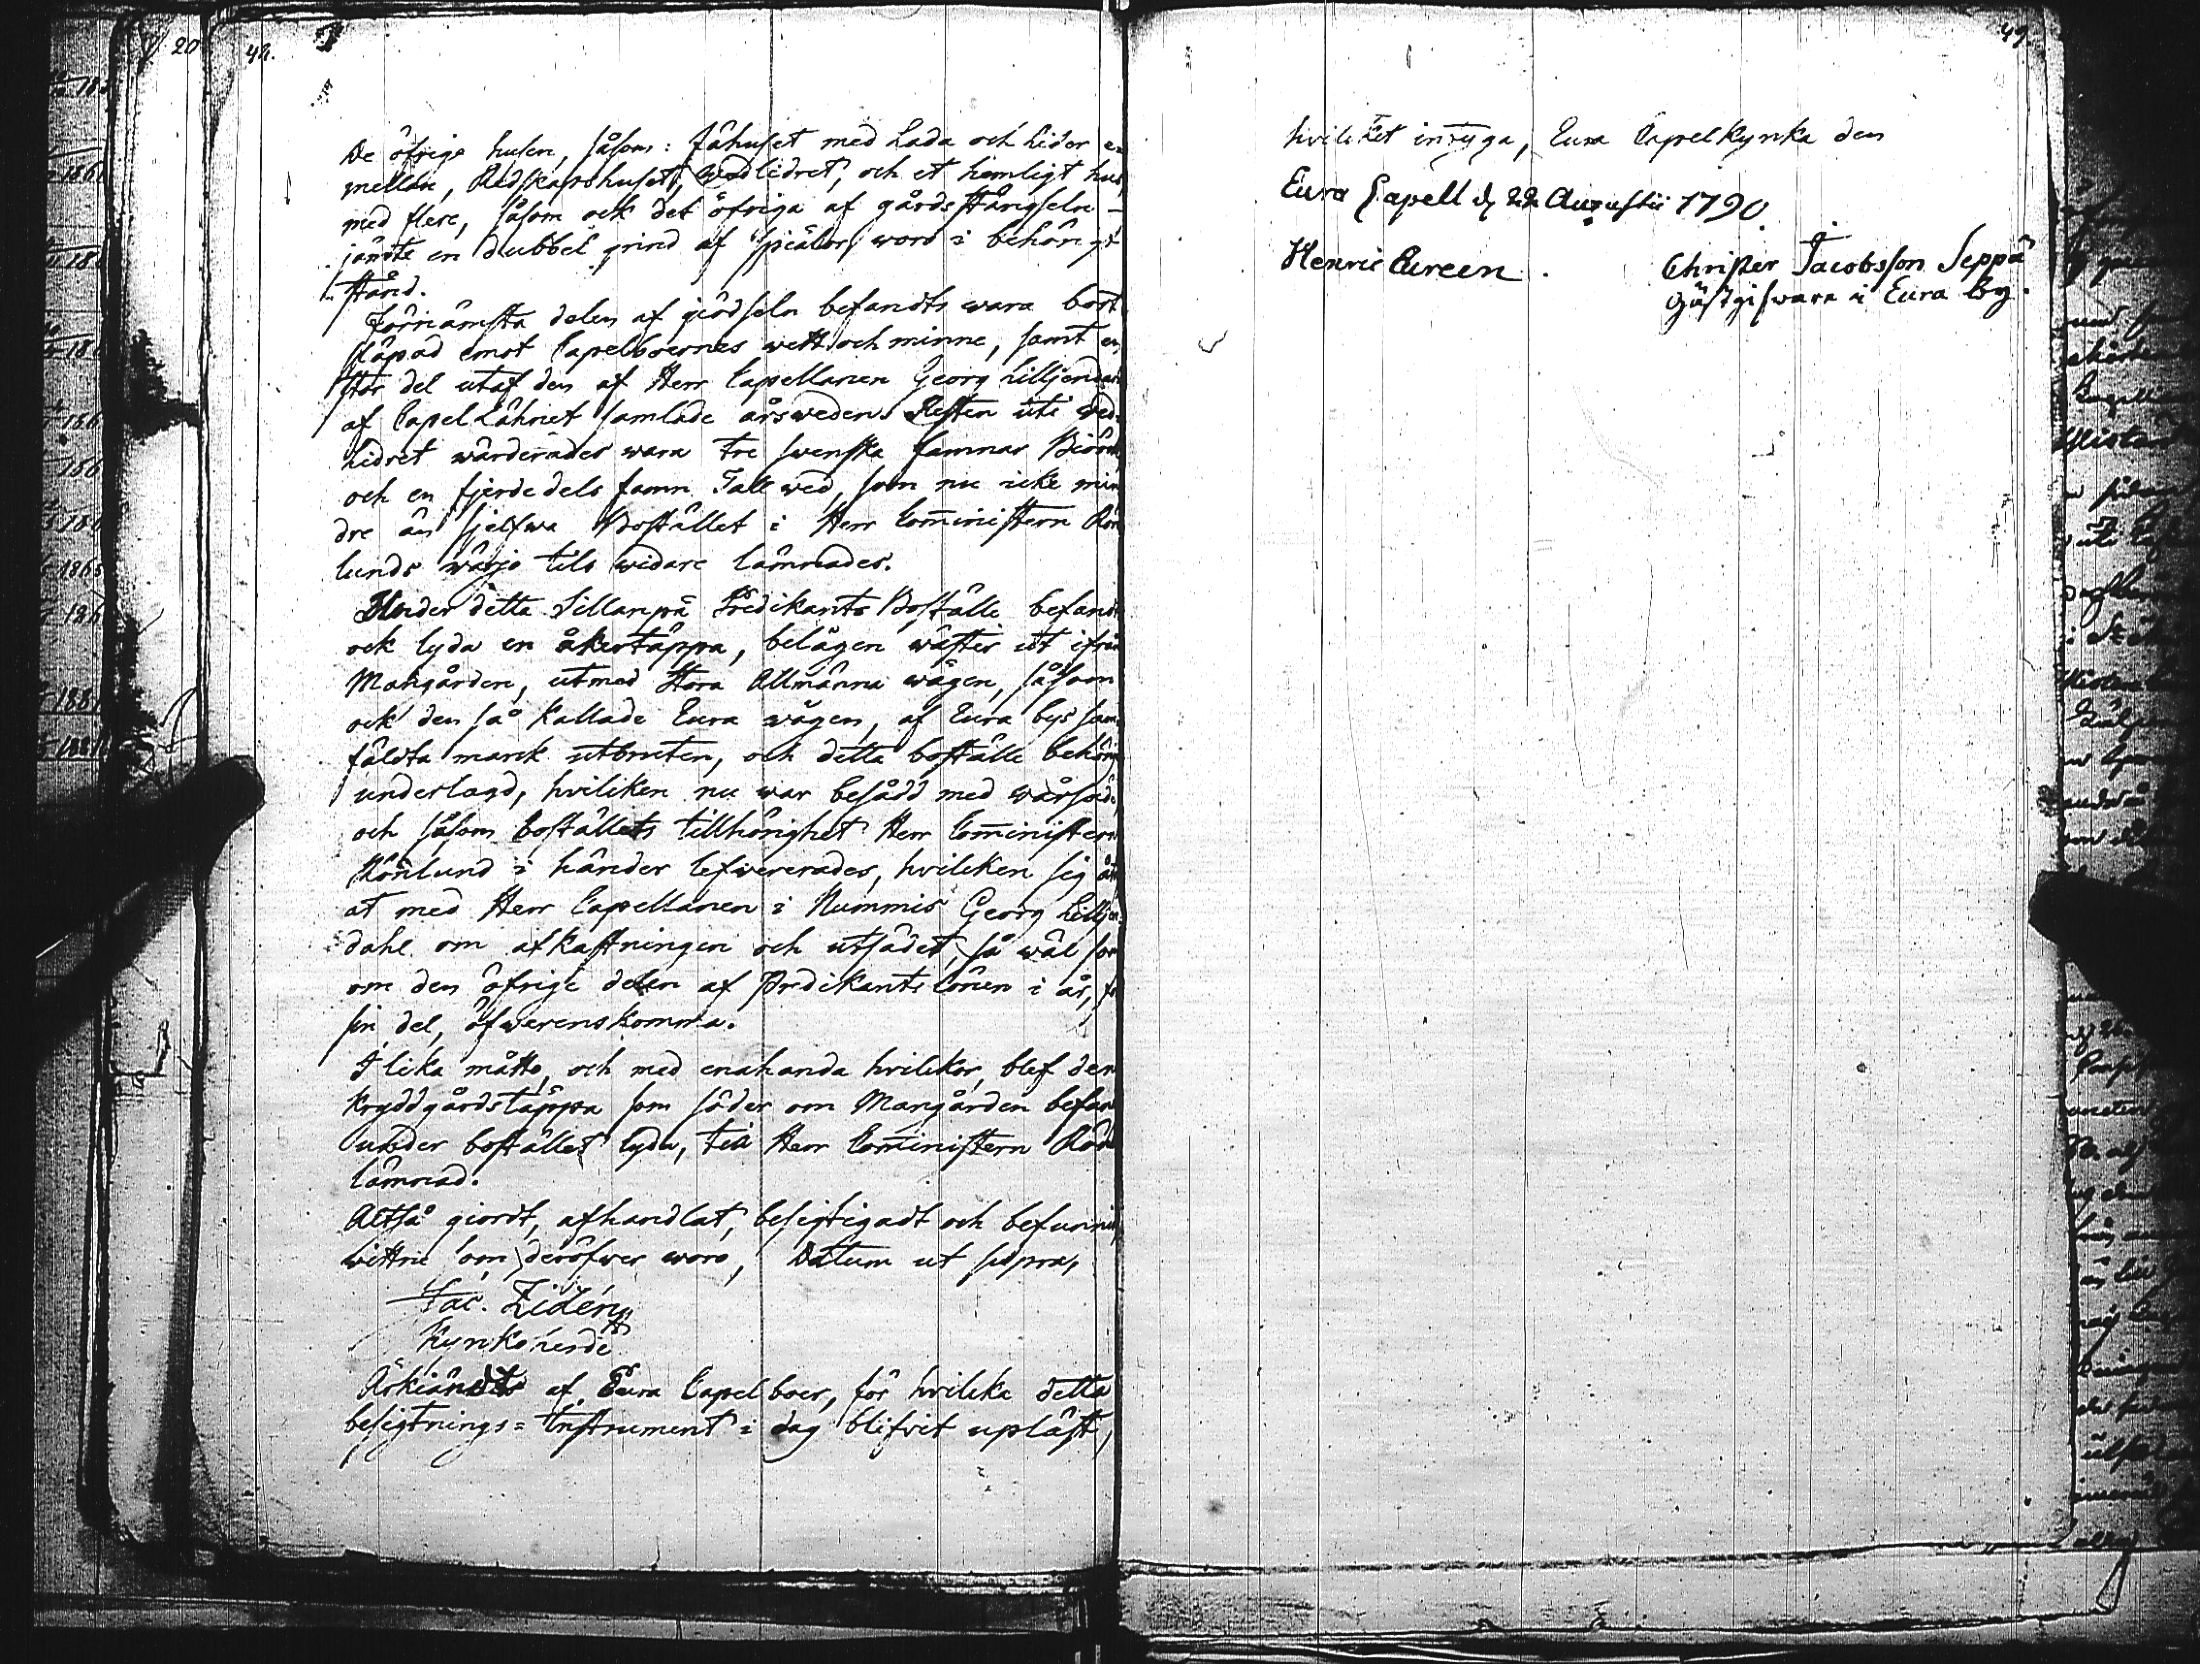 48.
De öfrige husen, såsom: fähuset med Lada och Lider e-
mellan, Redskapshuset, Wedlidret, och et hemligt hus,
med flere, såsom ock det öfriga af gårdsstängseln -
jämte en dubbel grind af spiälor, woro i behörigt
stånd.
Förnämsta delen af giödseln befandts wara bort
släpad emot Capelboernes wett och minne, samt en
stor del utaf den af Herr Capellanen Georg Lilljendahl
af Capel Låhnet samlade årsweden. Resten uti Wed-
lidret wärderades wara tre swenska famnar Biörk
och en fjerdedels famn Tall wed, som nu icke min
dre än sjelfwa Bostället i Herr Com̅inistern Rön
lunds wärjo tils widare lämnades.
Under detta Sillanpä Predikants Boställe befandts
ock lyda en åkertäppa, belägen wäster ut ifrån
Mangården, utmed Stora Allmänna wägen, såsom
ock den så kallade Eura wägen, af Eura bys sam-
fäldta mark utbruten, och detta boställe behörig
underlagd, hvilken nu war besådd med wårsäd,
och såsom boställets tillhörighet Herr Com̅inistern
Rönlund i händer lefwererades, hvilken sig åt
at med Herr Capellanen i Nummis Georg Lilljen
dahl om afkastningen och utsädet, så wäl som
om den öfrige delen af Predikants lönen i år, för
sin del, öfwerenskomma.
I lika måtto, och med enahanda hvilkor, blef den
Kryddgårdstäppa som söder om Mangården befan
under bostället lyda, till Herr Com̅inistern Rön
lämnad.
Altså giordt, afhandlat, besigtigadt och befunnit,
wittne om deröfwer woro, Datum ut supra,
Jac. Zidén
Kyrkoherde
Ärkiändts af Eura Capelboer, för hvilka detta
besigtnings=Instrument i dag blifvit upläst,
49.
hvilket intyga, Eura Capelkyrka den
Eura Capell d 22 Augustii 1790
Henric Eureen.
Christer Jacobsson Seppä
Gästgifware i Eura by.